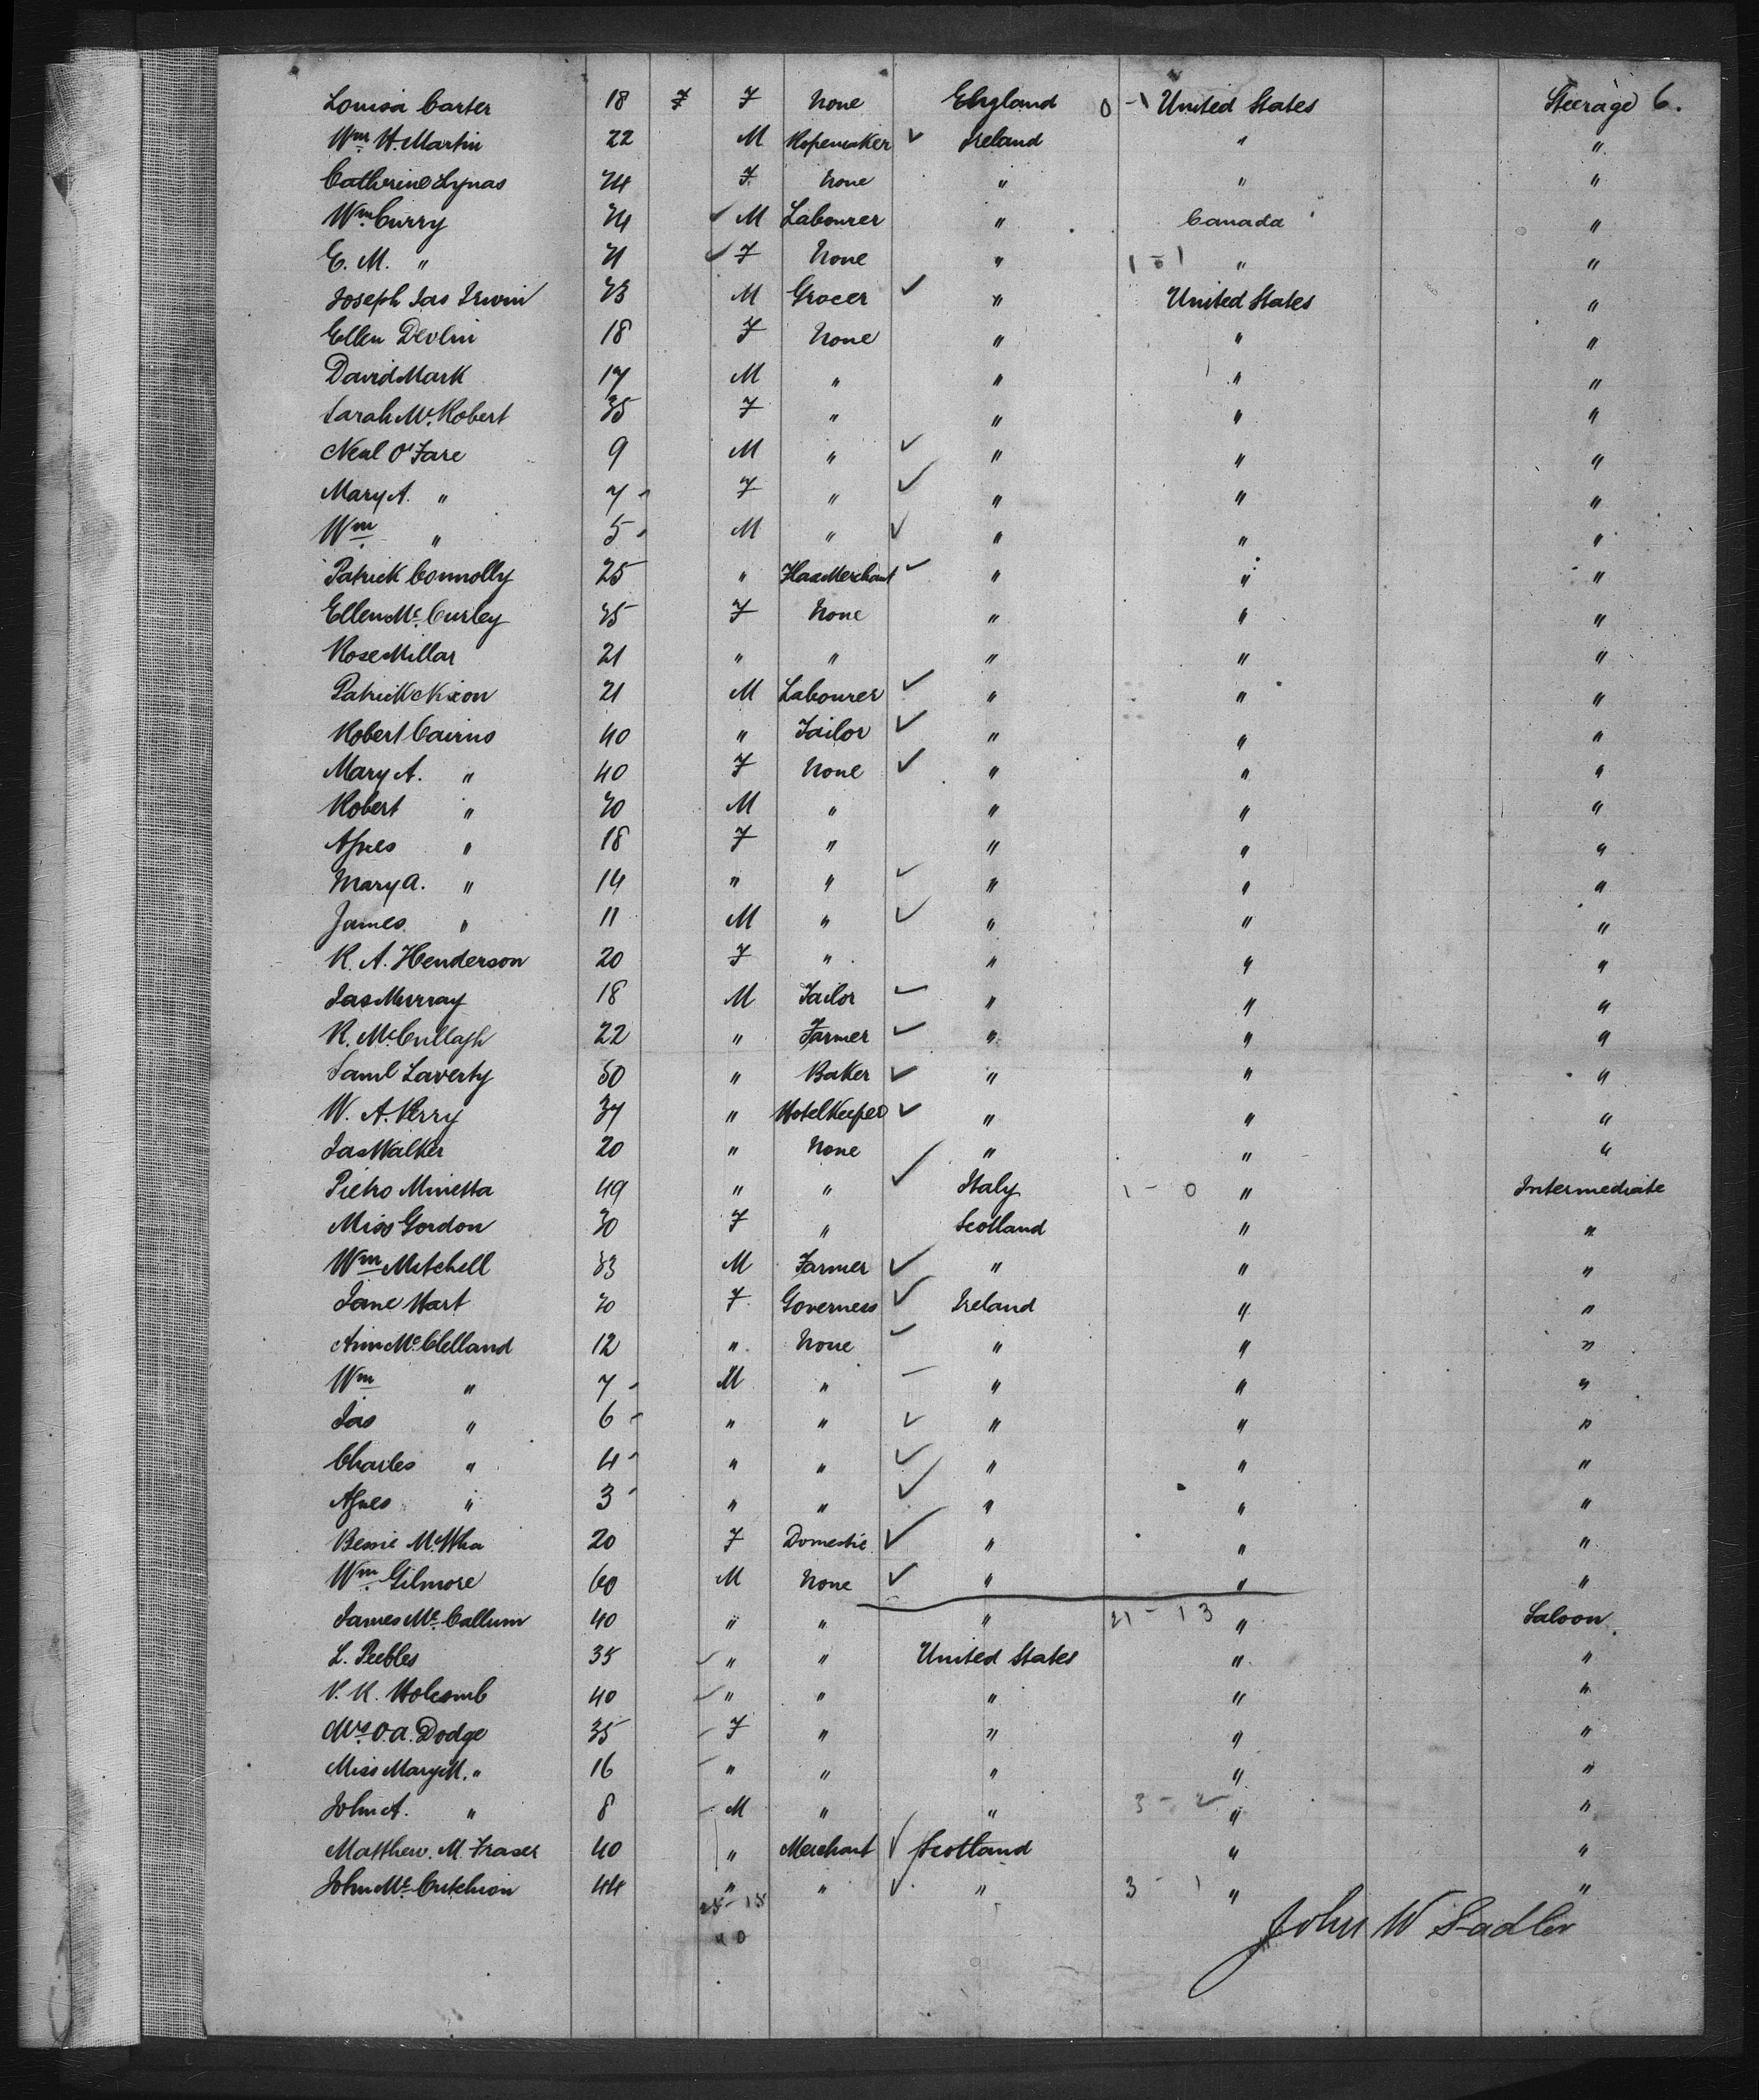 Louisa Carter 18 F F None England 0-1 United States Steerage 6.
Wm H. Martin 22 M Ropemaker ✓ Ireland " "
Catherine Lynas 24 F. None " " "
Wm Curry 24 ✓ M Labourer " Canada "
E. M. " 21 ✓ F None " 1-1 " "
Joseph Jas Irwin 23 M Grocer ✓ " United States "
Ellen Devlin 18 F None " " "
David Mark 17 M " " " "
Sarah Mc Robert 35 F " " " "
Neal O'Fare 9 M " ✓ " " "
Mary A. " 7 - F " ✓ " " "
Wm " 5 - M " ✓ " " "
Patrick Connolly 25 " Flax Merchant ✓ " " "
Ellen Mc Curley 35 F None " " "
Rose Millar 21 " " " " "
Patrick Nixon 21 M Labourer ✓ " " "
Robert Cairns 40 " Tailor ✓ " " "
Mary A. " 40 F None ✓ " " "
Robert " 20 M " " " "
Agnes " 18 F " " " "
Mary A. " 14 " " ✓ " " "
James " 11 M " ✓ " " "
R. A. Henderson 20 F " " " "
Jas Murray 18 M Tailor ✓ " " "
R. McCullagh 22 " Farmer ✓ " " "
Saml Laverty 50 " Baker ✓ " " "
W. A. Perry 37 " Hotel Keeper ✓ " " "
Jas Walker 20 " None " " "
Pietro Minetta 49 " " ✓ Italy 1-0 " Intermediate
Miss Gordon 30 F " Scotland " "
Wm Mitchell 33 M Farmer ✓ " " "
Jane Hart 30 F. Governess ✓ Ireland " "
Ann Mc Clelland 12 " None ✓ " " "
Wm " 7 - M " - " " "
Jas " 6 - " " ✓ " " "
Charles " 4 - " " ✓ " " "
Agnes " 3 - " " ✓ " " "
Bessie McWha 20 F Domestic ✓ " " "
Wm Gilmore 60 M None ✓ " " "
James Mc Callum 40 " " " 21-13 " Saloon
L. Peebles 35 ✓ " " United States " "
V. R. Holcomb 40 ✓ " " " " "
Mrs O. A. Dodge 35 - F " " " "
Miss Mary M. " 16 - " " " " "
John A. " 8 - M " " 3-2 " "
Matthew. M. Fraser 40 " Merchant ✓ Scotland " "
John Mc Cutchion 44 " " ✓ " 3-1 " "
25-15
40
John W Sadler